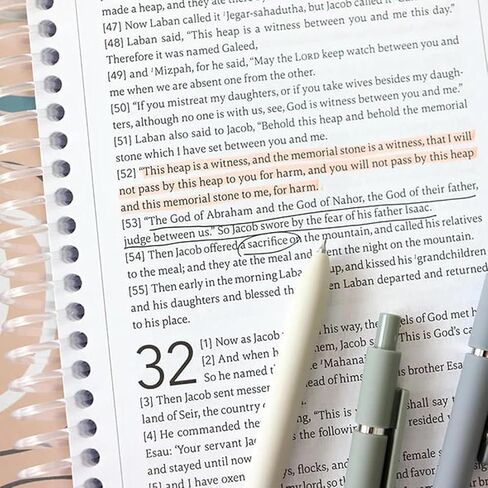 made a heap, and they ate there
[47] Now Laban called it Jegar-sahadutha, but Jacob called it
[48] Laban said, “This heap is a witness between you and me this day.”
Therefore it was named Galeed,
[49] and Mizpah, for he said, “May the LORD keep watch between you and
me when we are absent one from the other.
[50] “If you mistreat my daughters, or if you take wives besides my daugh-
ters, although no one is with us, see, God is witness between you and me.”
[51] Laban also said to Jacob, “Behold this heap and behold the memorial
stone which I have set between you and me.
[52] “This heap is a witness, and the memorial stone is a witness, that I will
not pass by this heap to you for harm, and you will not pass by this heap
and this memorial stone to me, for harm.
[53] “The God of Abraham and the God of Nahor, the God of their father,
judge between us.” So Jacob swore by the fear of his father Isaac.
[54] Then Jacob offered a sacrifice on the mountain, and called his relatives
to the meal; and they ate the meal and spent the night on the mountain.
[55] Then early in the morning Laban up, and kissed his grandchildren
and his daughters and blessed Laban departed and returned
to his place.
32 [1] Now as Jacob his way, the of God met
[2] And when Jacob said, “This is God’s
So he named
[3] Then Jacob sent of his brother Esau
land of Seir, the country
[4] He commanded “This is shall say
Esau: ‘Your servant resided
and stayed until now
[5] and I have oxen flocks, and female
my lord, so favor